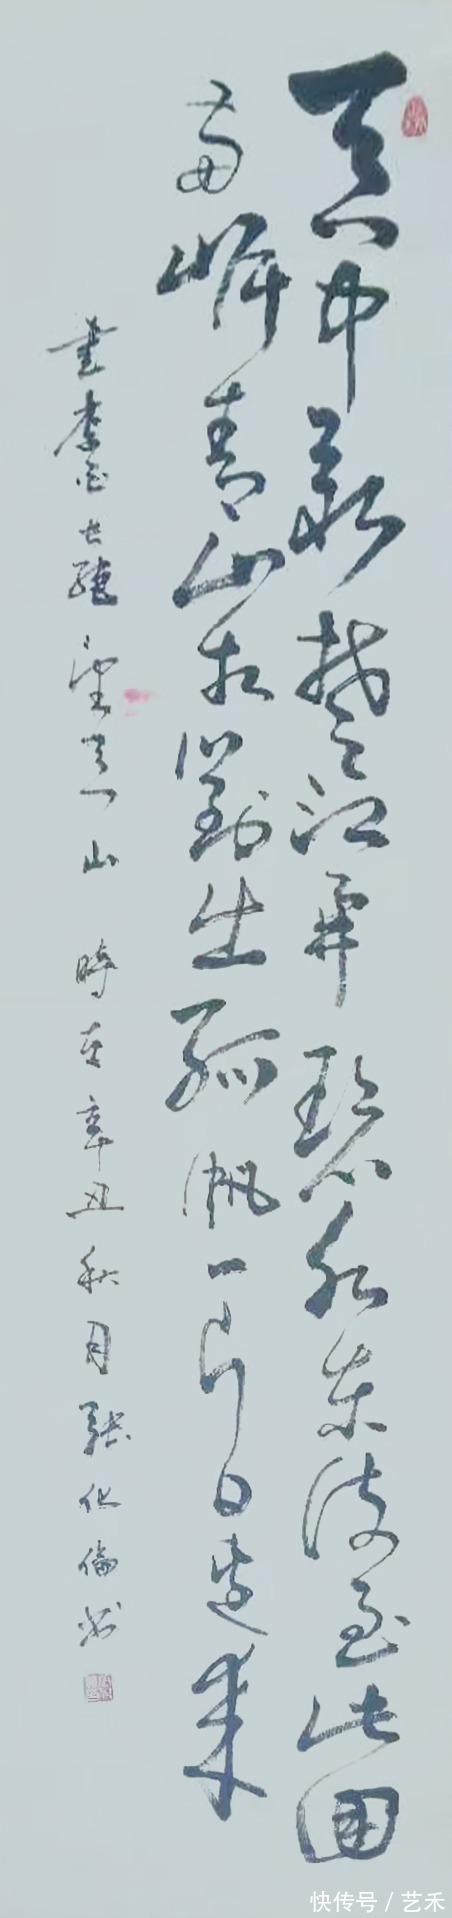 天门中断楚江开碧水东流至此回
两岸青山相對出孤帆一片日边来
書李白七絕望天门山 時在辛丑秋月張化倫书
快传号 / 艺禾